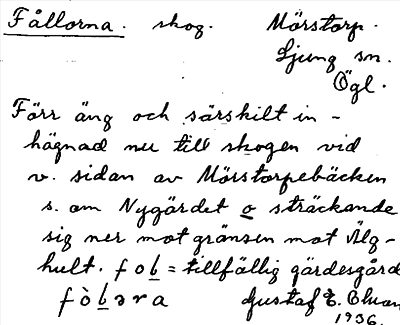 Fållorna. skog. Mörstorp.
Ljung sn.
Ögl.
Förr äng och särskilt in-
hägnad nu till skogen vid
v. sidan av Mörstorpebäcken
s. om Nygärdet o sträckande
sig ner mot gränsen mot Älg-
hult. fob = tillfällig gärdesgård
fòbəra Gustaf E.
1936.